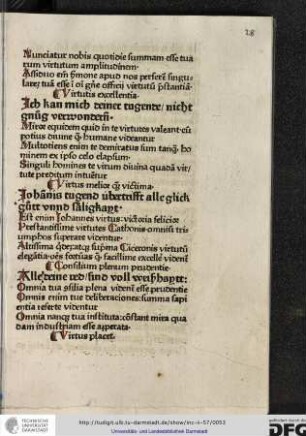 28
Nunciatur nobis quotidie summam esse tua
rum virtutum amplitudinem
Assiduo em̄ sermone apud nos perferri singu
lareʒ tuā esse ī oī gn̄e officij virtutū p̄stantiā
Virtutis excellentia
Ich kan mich deiner tugente/nicht
gnůg verwondern
Miror equidem quid in te virtutes valeant es
potius diuine ꝗ̄ humane videantur
Multotiens enim te demiratus sum tanꝗ̄ ho
minem ex ipso celo elapsum
Singuli homines te virum diuina quadā vir
tute preditum intuētur
Virtus melior ꝗ̄ victima
Johānis tugend übertrifft alle glick
gůtt vnnd säligkayt
Est enim Johannis virtus victoria felicior
Prestantissime virtutes Cathonis omniū tri
umphos superare videntur
Altissima Ciceronis virtutū
facillime excellē videnť
Consilium plenum prudentie
Alle deine red/sind voll weyßhaytt
Omnia tua cōsilia plena videnť esse prudentie
Omnia enim tue deliberationes summa sapi
entia referte videntur
Omnia nancꝗ tua instituta cōstant mira qua
dam industriam esse asperata
Virtus placet
TECHNISCHE UNIVERSITÄT DARMSTADT
http://tudigit.ulb.tu-darmstadt.de/show/inc-ii-57/0053
Universitäts- und Landesbibliothek Darmstadt
DFG